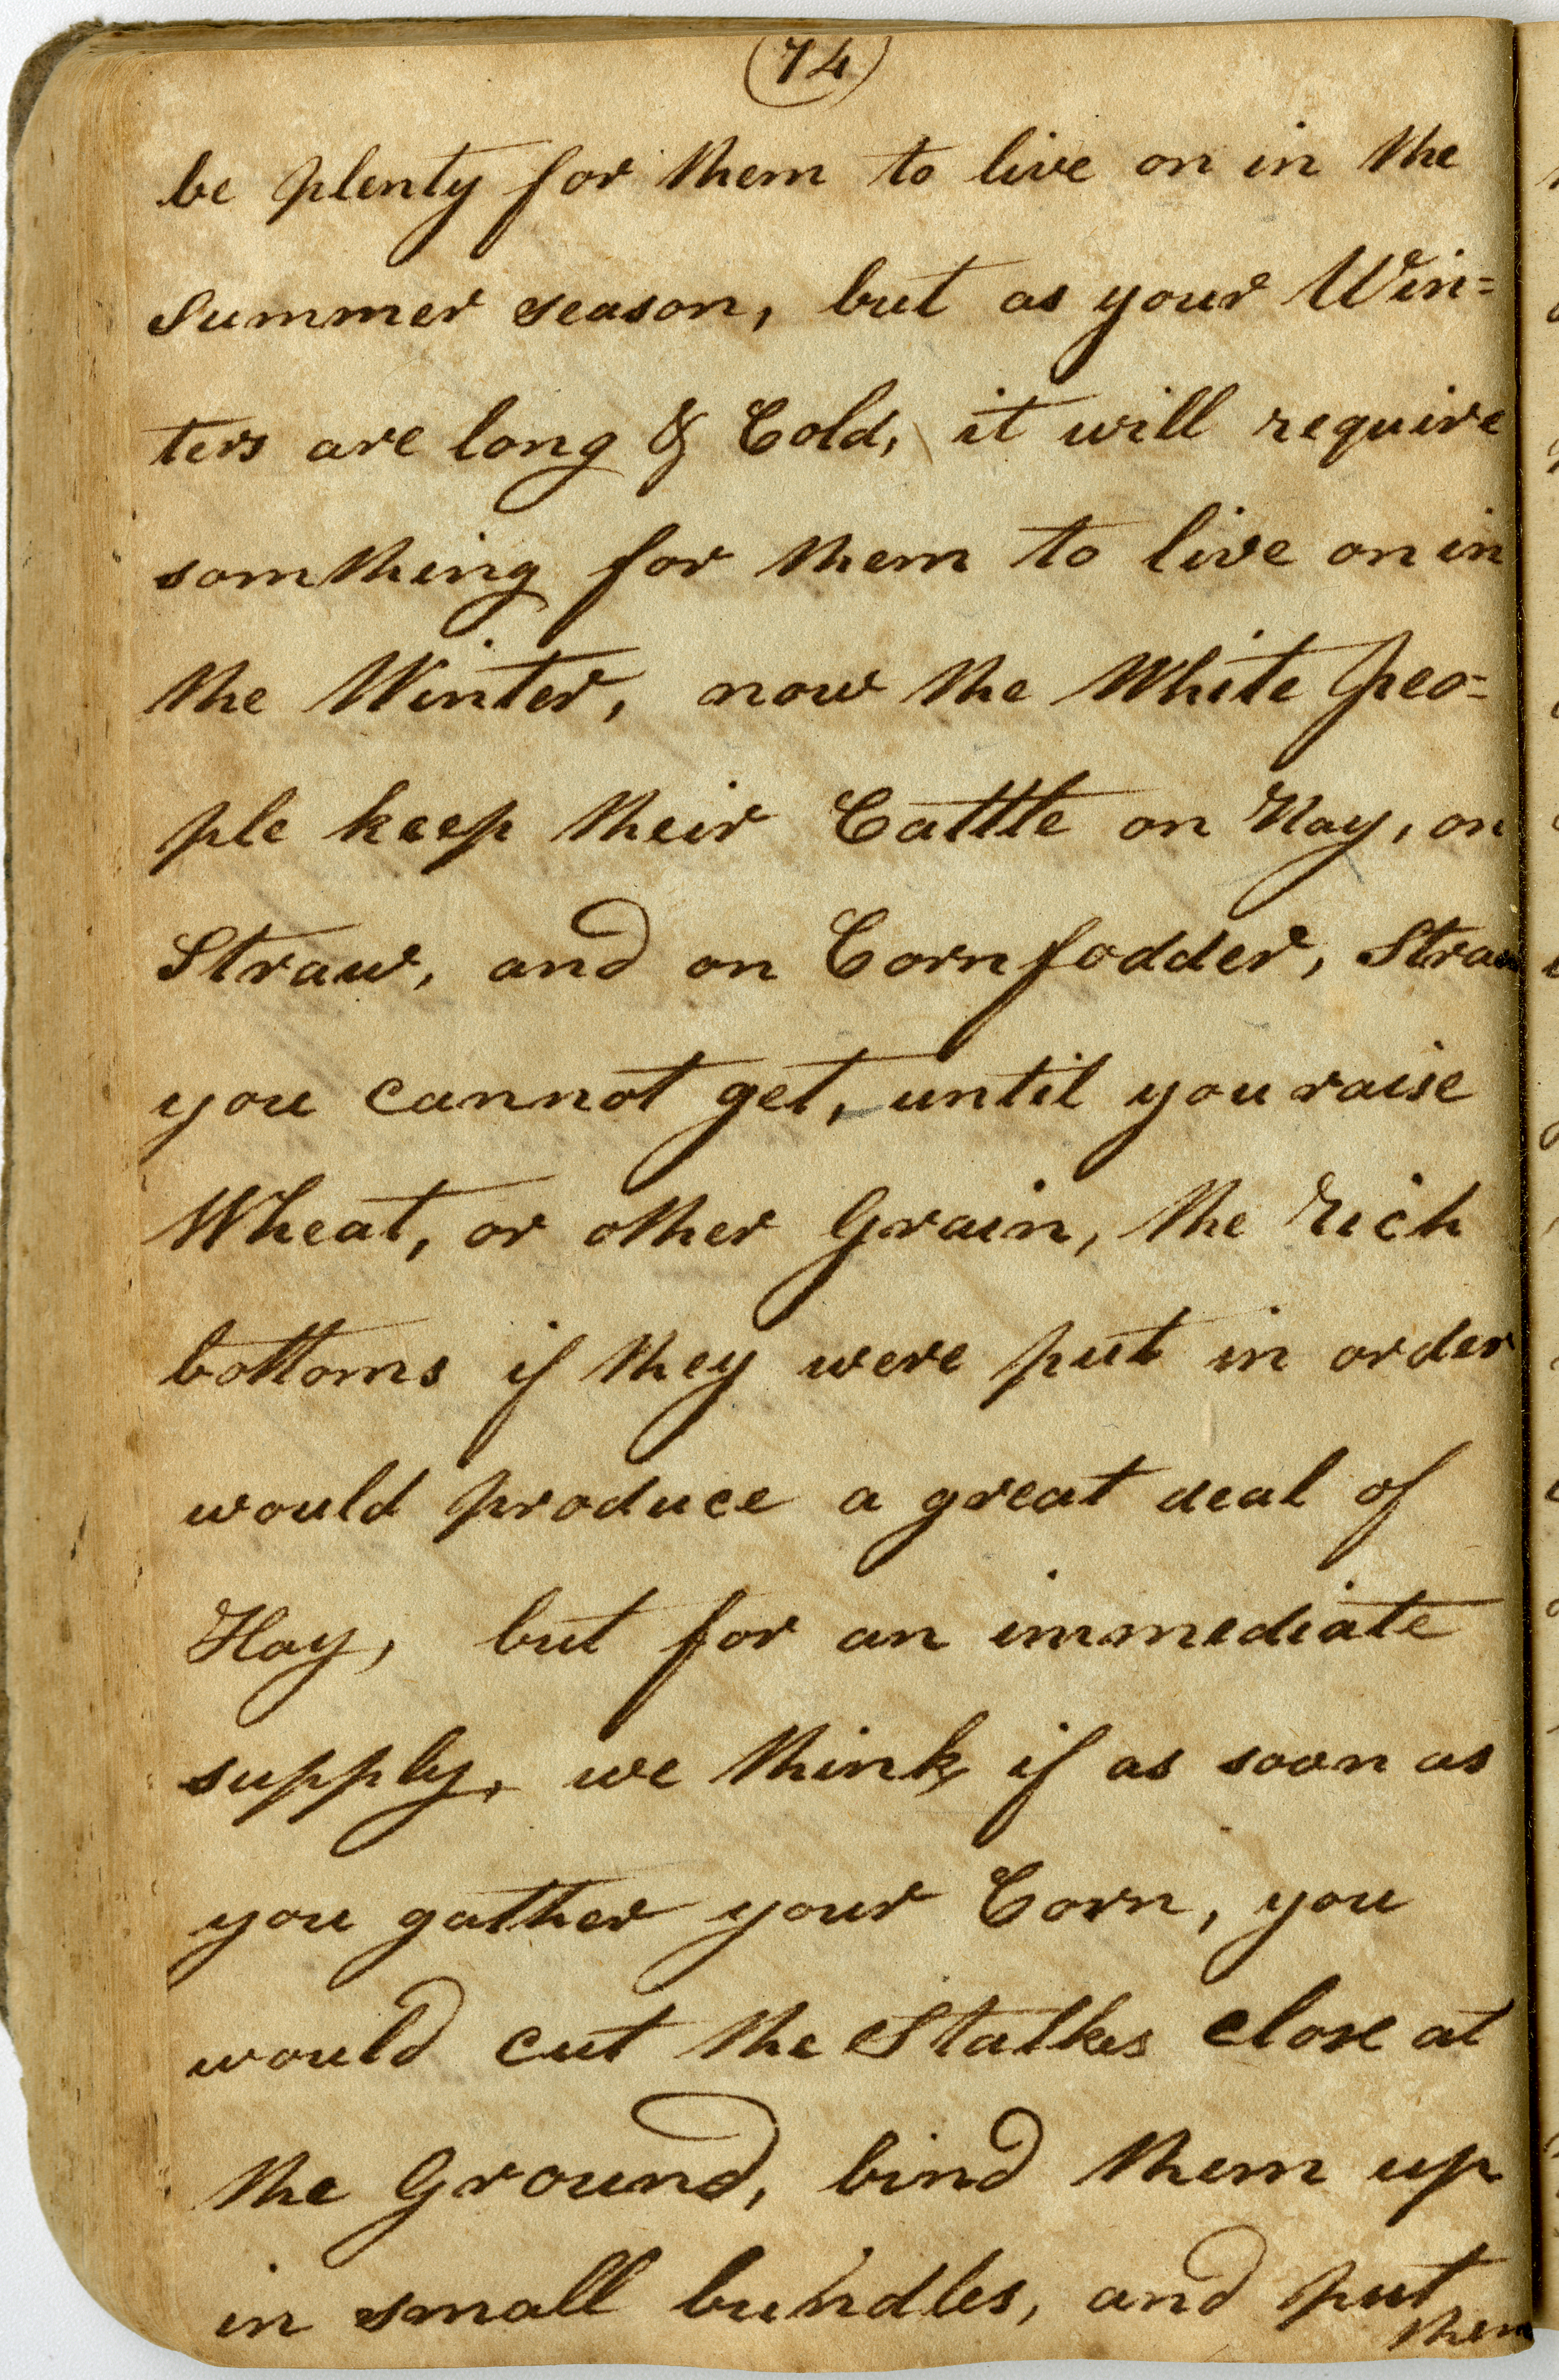 (74)
be plenty for them to live on in the
Summer season, but as your Win=
ters are long & Cold, it will require
somthing for them to live on in
the Winter, now the White peo=
ple keep their Cattle on Hay, on
Straw, and on Cornfodder, Straw
you cannot get, until you raise
Wheat, or other Grain, the rich
bottoms if they were put in order
would produce a great deal of
Hay, but for an immediate
supply, we think, if as soon as
you gather your Corn, you
would cut the Stalkes close at
the Ground, bind them up
in small bundles, and put
them